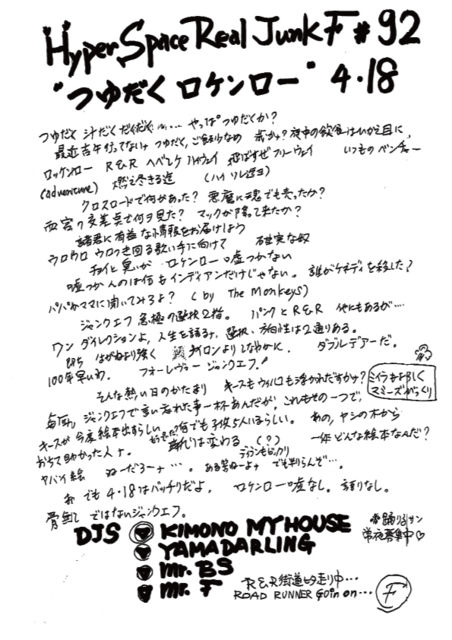 Hyper Space Real Junk F #92
"つゆだく ロケンロー" 4.18
つゆだく 汁だく だくだく…… やっぱ つゆだくか?
最近吉牛行ってないけ つゆだく、ご飯少なめ 夜中の飲食はひかえ目に、
ロッケンロー R&R ヘベレケ ハイウェイ 飛ばすぜ フリーウェイ いつもの ベンチャー
(adventure) 燃え尽きる迄 (ハイ ソレ迄ヨ)
クロスロードで何があった? 悪魔に魂でも売ったか?
西宮の交差点で何ヲ見た? マックが降って来たか?
諸君に有益な情報をお届けしよう
ウロウロ ウロつき回る歌い手に向けて 確実な奴
チョイと臭いが ロケンロー 嘘つかない
嘘つかんのは何もインディアンだけじゃない。 誰がケネディを殺した?
パパかママに聞いてみるよ? (by The Monkeys)
ジャンクエフ 究極の選択2指。 パンクとR&R 他にもあるが…
ワン ダイレクションよ、人生を語る 選択、方向性は2通りある。
即ち はがねより強く ナイロンよりしなやかに。 ダブルデアーだ。
100年早いわ。 フォーレヴァー ジャンクエフ!
そんな熱い日のかたまり キースもウィルコも浮かれだすかァ?
ミイラもよろしく
マミーズがっくり
毎月、ジャンクエフで言い忘れた事一杯あんだが、これもその一つで、
キースが今度絵本出すらしい。 何でも子供5人いるらしい。 あの、ヤシの木から
おちて助かった人よ。 変わる (?) 一体どんな絵本なんだ?
ヤバイ絵 ぬーだろーナ…。 ある筈ねーよナ でも判らんぞ…
でも 4・18はバッチリだよ。 ロケンロー嘘なし。 誤りなし。
骨無し ではないジャンクエフ。
DJS KIMONO MY HOUSE
YAMADARLING
Mr. BS
Mr. F
常夜募集中♡
R&R街道ひた走り中…
ROAD RUNNER Goin on…
F